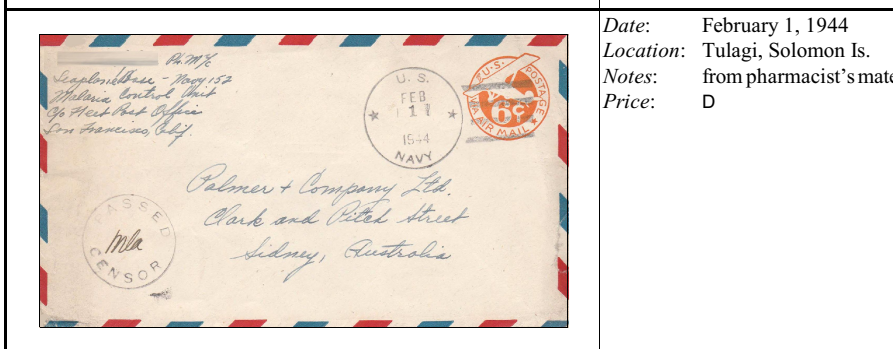 Ph M 1/c
Seaplane Base - Navy 152
Malaria Control Unit
c/o Fleet Post Office
San Francisco, Calif.
U. S.
FEB
1
1944
NAVY
U.S. POSTAGE
6¢
VIA AIR MAIL
Palmer + Company Ltd.
Clark and Pitch Street
Sidney, Australia
PASSED
CENSOR
Date: February 1, 1944
Location: Tulagi, Solomon Is.
Notes: from pharmacist's mate
Price: D